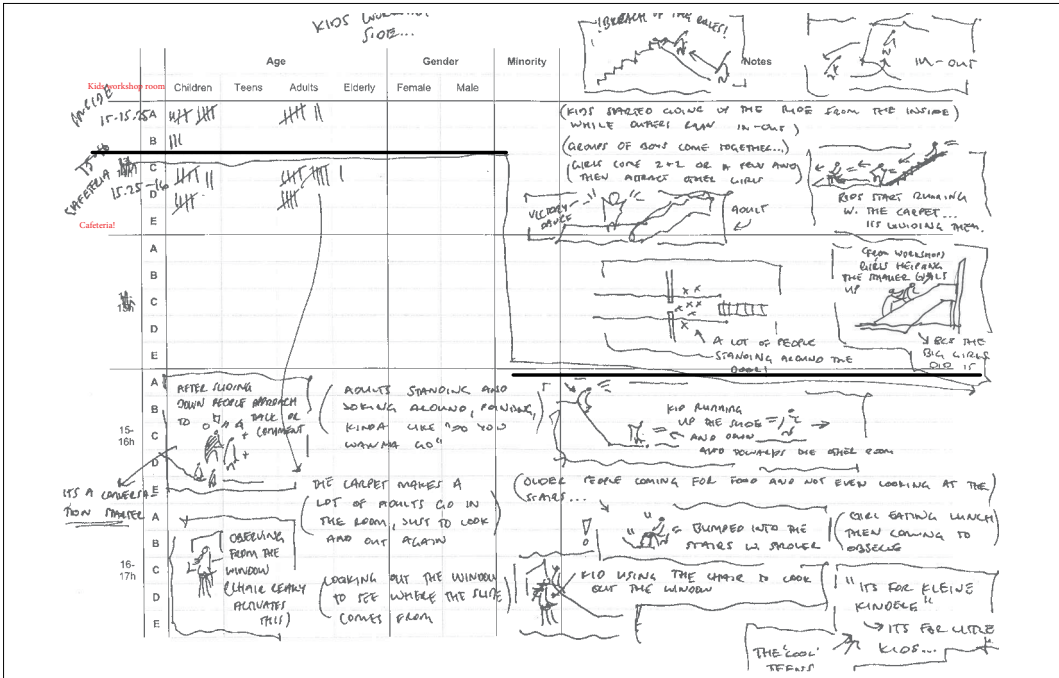 KIDS WORKSHOP
SIDE...
Age
Gender
Minority
Notes
Kids workshop room
Children
Teens
Adults
Elderly
Female
Male
INSIDE
15-15.25
A
B
CAFETERIA
15.25-16
C
D
E
Cafeteria!
A
B
C
D
E
15h
A
B
C
D
E
15-
16h
A
B
C
D
E
16-
17h
!BREACH OF THE RULES!
IN-OUT
(KIDS STARTED GOING UP THE SLIDE FROM THE INSIDE)
WHILE OTHERS RAN IN-OUT)
(GROUPS OF BOYS COME TOGETHER...)
(GIRLS COME 2+2 OR A FEW AND)
THEN ATTRACT OTHER GIRLS
VICTORY
DANCE
ADULT
KIDS START RUNNING
W. THE CARPET...
ITS GUIDING THEM.
(FROM WORKSHOP)
GIRLS HELPING
THE SMALLER GIRLS
UP
BCS THE
BIG GIRLS
DID IT
A LOT OF PEOPLE
STANDING AROUND THE
DOOR!
AFTER SLIDING
DOWN PEOPLE APPROACH
TO TALK OR
COMMENT
ITS A CONVERSA-
TION STARTER
(ADULTS STANDING AND
JOKING AROUND, POINTING,
KINDA LIKE "DO YOU
WANNA GO")
KID RUNNING
UP THE SLIDE
AND DOWN
ALSO TOWARDS THE OTHER ROOM
THE CARPET MAKES A
LOT OF ADULTS GO IN
THE ROOM, JUST TO LOOK
AND OUT AGAIN
(OLDER PEOPLE COMING FOR FOOD AND NOT EVEN LOOKING AT THE
STAIRS...
BUMPED INTO THE
STAIRS W. STROLER
(GIRL EATING LUNCH
THEN COMING TO
OBSERVE
OBSERVING
FROM THE
WINDOW
(CHAIR REALLY
ACTIVATES
THIS)
(LOOKING OUT THE WINDOW
TO SEE WHERE THE SLIDE
COMES FROM)
KID USING THE CHAIR TO LOOK
OUT THE WINDOW
"ITS FOR KLEINE
KINDERE"
ITS FOR LITTLE
KIDS...
THE 'COOL'
TEENS